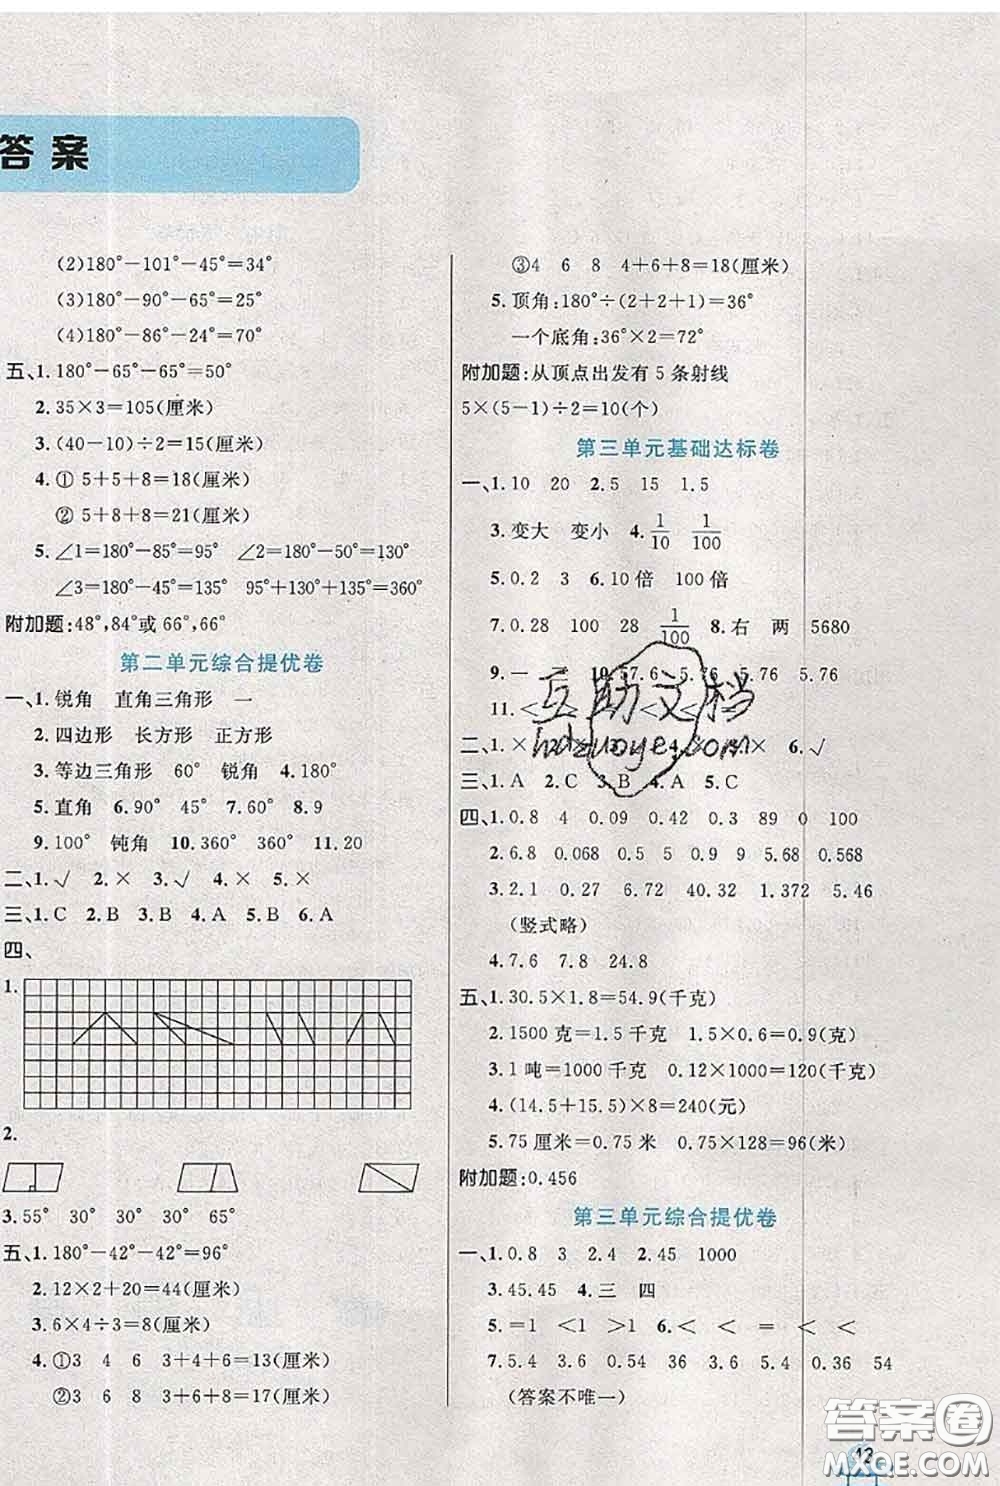 答案
(2)180°－101°－45°＝34°
(3)180°－90°－65°＝25°
(4)180°－86°－24°＝70°
五、1.180°－65°－65°＝50°
2.35×3＝105(厘米)
3.(40－10)÷2＝15(厘米)
4.① 5＋5＋8＝18(厘米)
② 5＋8＋8＝21(厘米)
5.∠1＝180°－85°＝95° ∠2＝180°－50°＝130°
∠3＝180°－45°＝135° 95°＋130°＋135°＝360°
附加题:48°,84°或 66°,66°
第二单元综合提优卷
一、1.锐角 直角三角形 一
2.四边形 长方形 正方形
3.等边三角形 60° 锐角 4.180°
5.直角 6.90° 45° 7.60° 8.9
9.100° 钝角 10.360° 360° 11.20
二、1.√ 2.× 3.√ 4.× 5.×
三、1.C 2.B 3.B 4.A 5.B 6.A
四、
1.
2.
3.55° 30° 30° 30° 65°
五、1.180°－42°－42°＝96°
2.12×2＋20＝44(厘米)
3.6×4÷3＝8(厘米)
4.①3 4 6 3＋4＋6＝13(厘米)
②3 6 8 3＋6＋8＝17(厘米)
③4 6 8 4＋6＋8＝18(厘米)
5.顶角:180°÷(2＋2＋1)＝36°
一个底角:36°×2＝72°
附加题:从顶点出发有 5 条射线
5×(5－1)÷2＝10(个)
第三单元基础达标卷
一、1.10 20 2.5 15 1.5
3.变大 变小 4.1/10 1/100
5.0.2 3 6.10 倍 100 倍
7.0.28 100 28 1/100 8.右 两 5680
9.一 三 10.57.6 5.76 5.76 5.76
11.< < < <
二、1.× 4.× 6.√
三、1.A 2.C 3.B 4.A 5.C
四、1.0.8 4 0.09 0.42 0.3 89 0 100
2.6.8 0.068 0.5 5 0.9 9 5.68 0.568
3.2.1 0.27 6.72 40.32 1.372 5.46
(竖式略)
4.7.6 7.8 24.8
五、1.30.5×1.8＝54.9(千克)
2.1500 克＝1.5 千克 1.5×0.6＝0.9(克)
3.1 吨＝1000 千克 0.12×1000＝120(千克)
4.(14.5＋15.5)×8＝240(元)
5.75 厘米＝0.75 米 0.75×128＝96(米)
附加题:0.456
第三单元综合提优卷
一、1.0.8 3 2.4 2.45 1000
3.45.45 4.三 四
5.＝1 <1 >1 6.< < ＝ < <
7.5.4 3.6 0.54 36 3.6 5.4 0.36 54
(答案不唯一)
互助文档
hdzuoye.com
答案卷
MXQE.COM